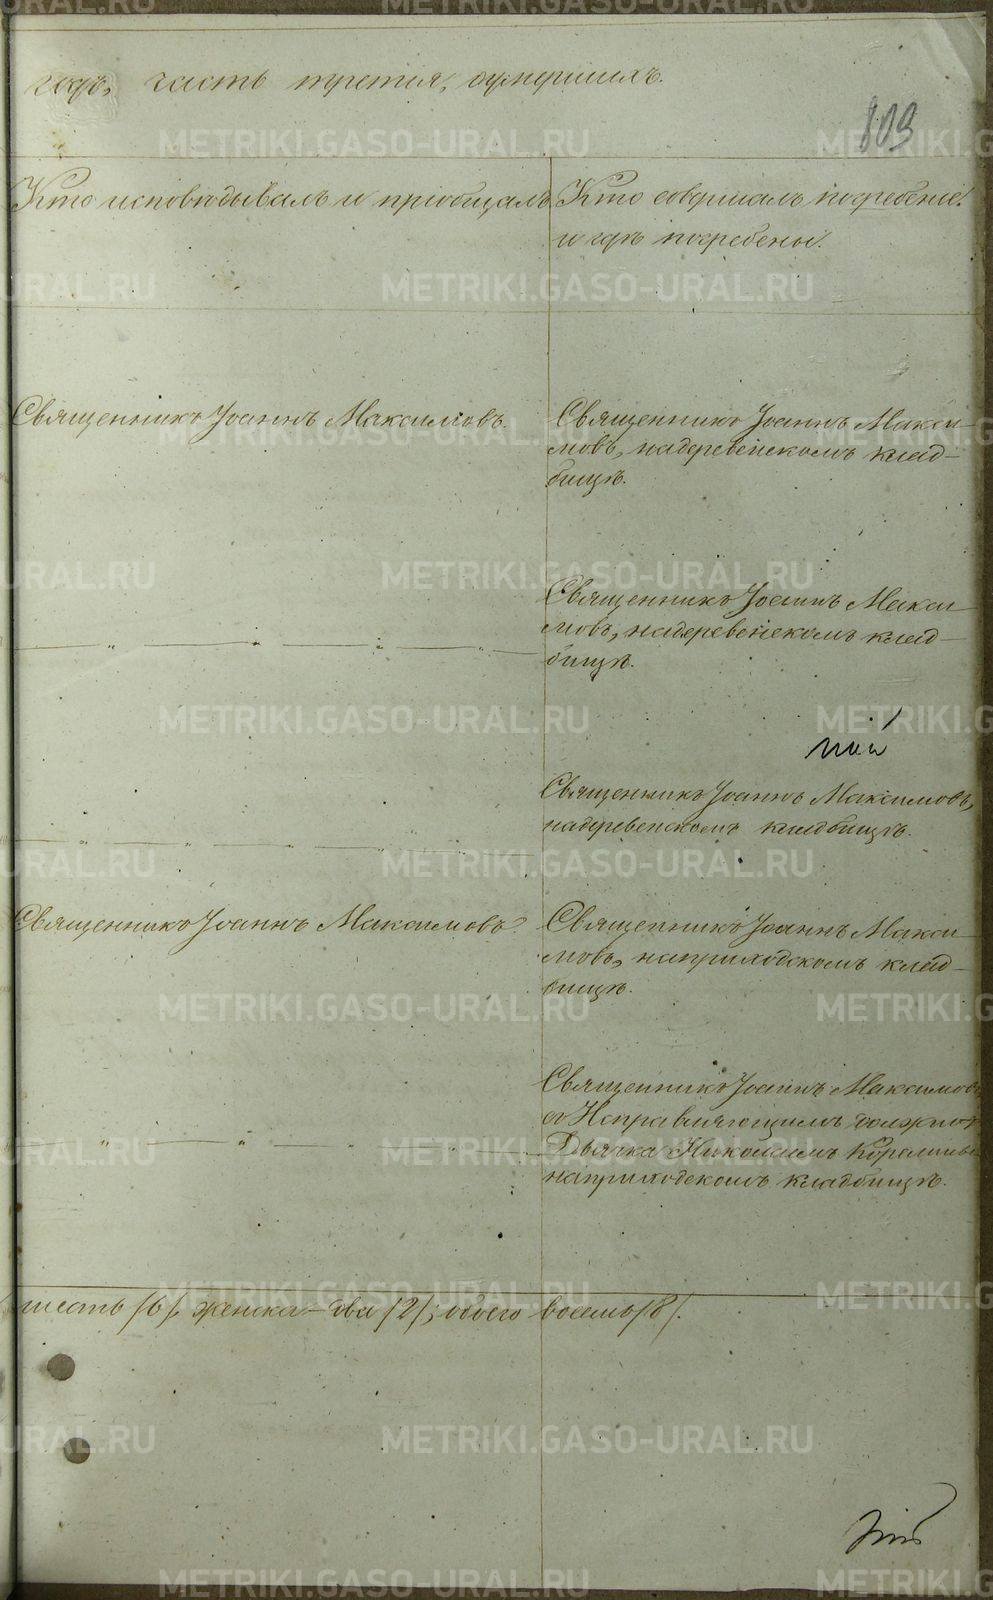 годъ, часть третія, умершихъ.
809
Кто исповѣдывалъ и пріобщалъ
Кто совершалъ погребеніе
и гдѣ погребены.
Священникъ Іоаннъ Максимовъ.
Священникъ Іоаннъ Макси-
мовъ, на деревенскомъ клад-
бищѣ.
Священникъ Іоаннъ Макси-
мовъ, на деревенскомъ клад-
бищѣ.
Священникъ Іоаннъ Максимовъ,
на деревенскомъ кладбищѣ.
Священникъ Іоаннъ Максимовъ.
Священникъ Іоаннъ Макси-
мовъ, на приходскомъ клад-
бищѣ.
Священникъ Іоаннъ Максимовъ
съ Исправляющимъ должнос
Дьячка Николаемъ
на приходскомъ кладбищѣ.
шесть /6/, женска – два /2/; обоего восемь /8/.
METRIKI.GASO-URAL.RU